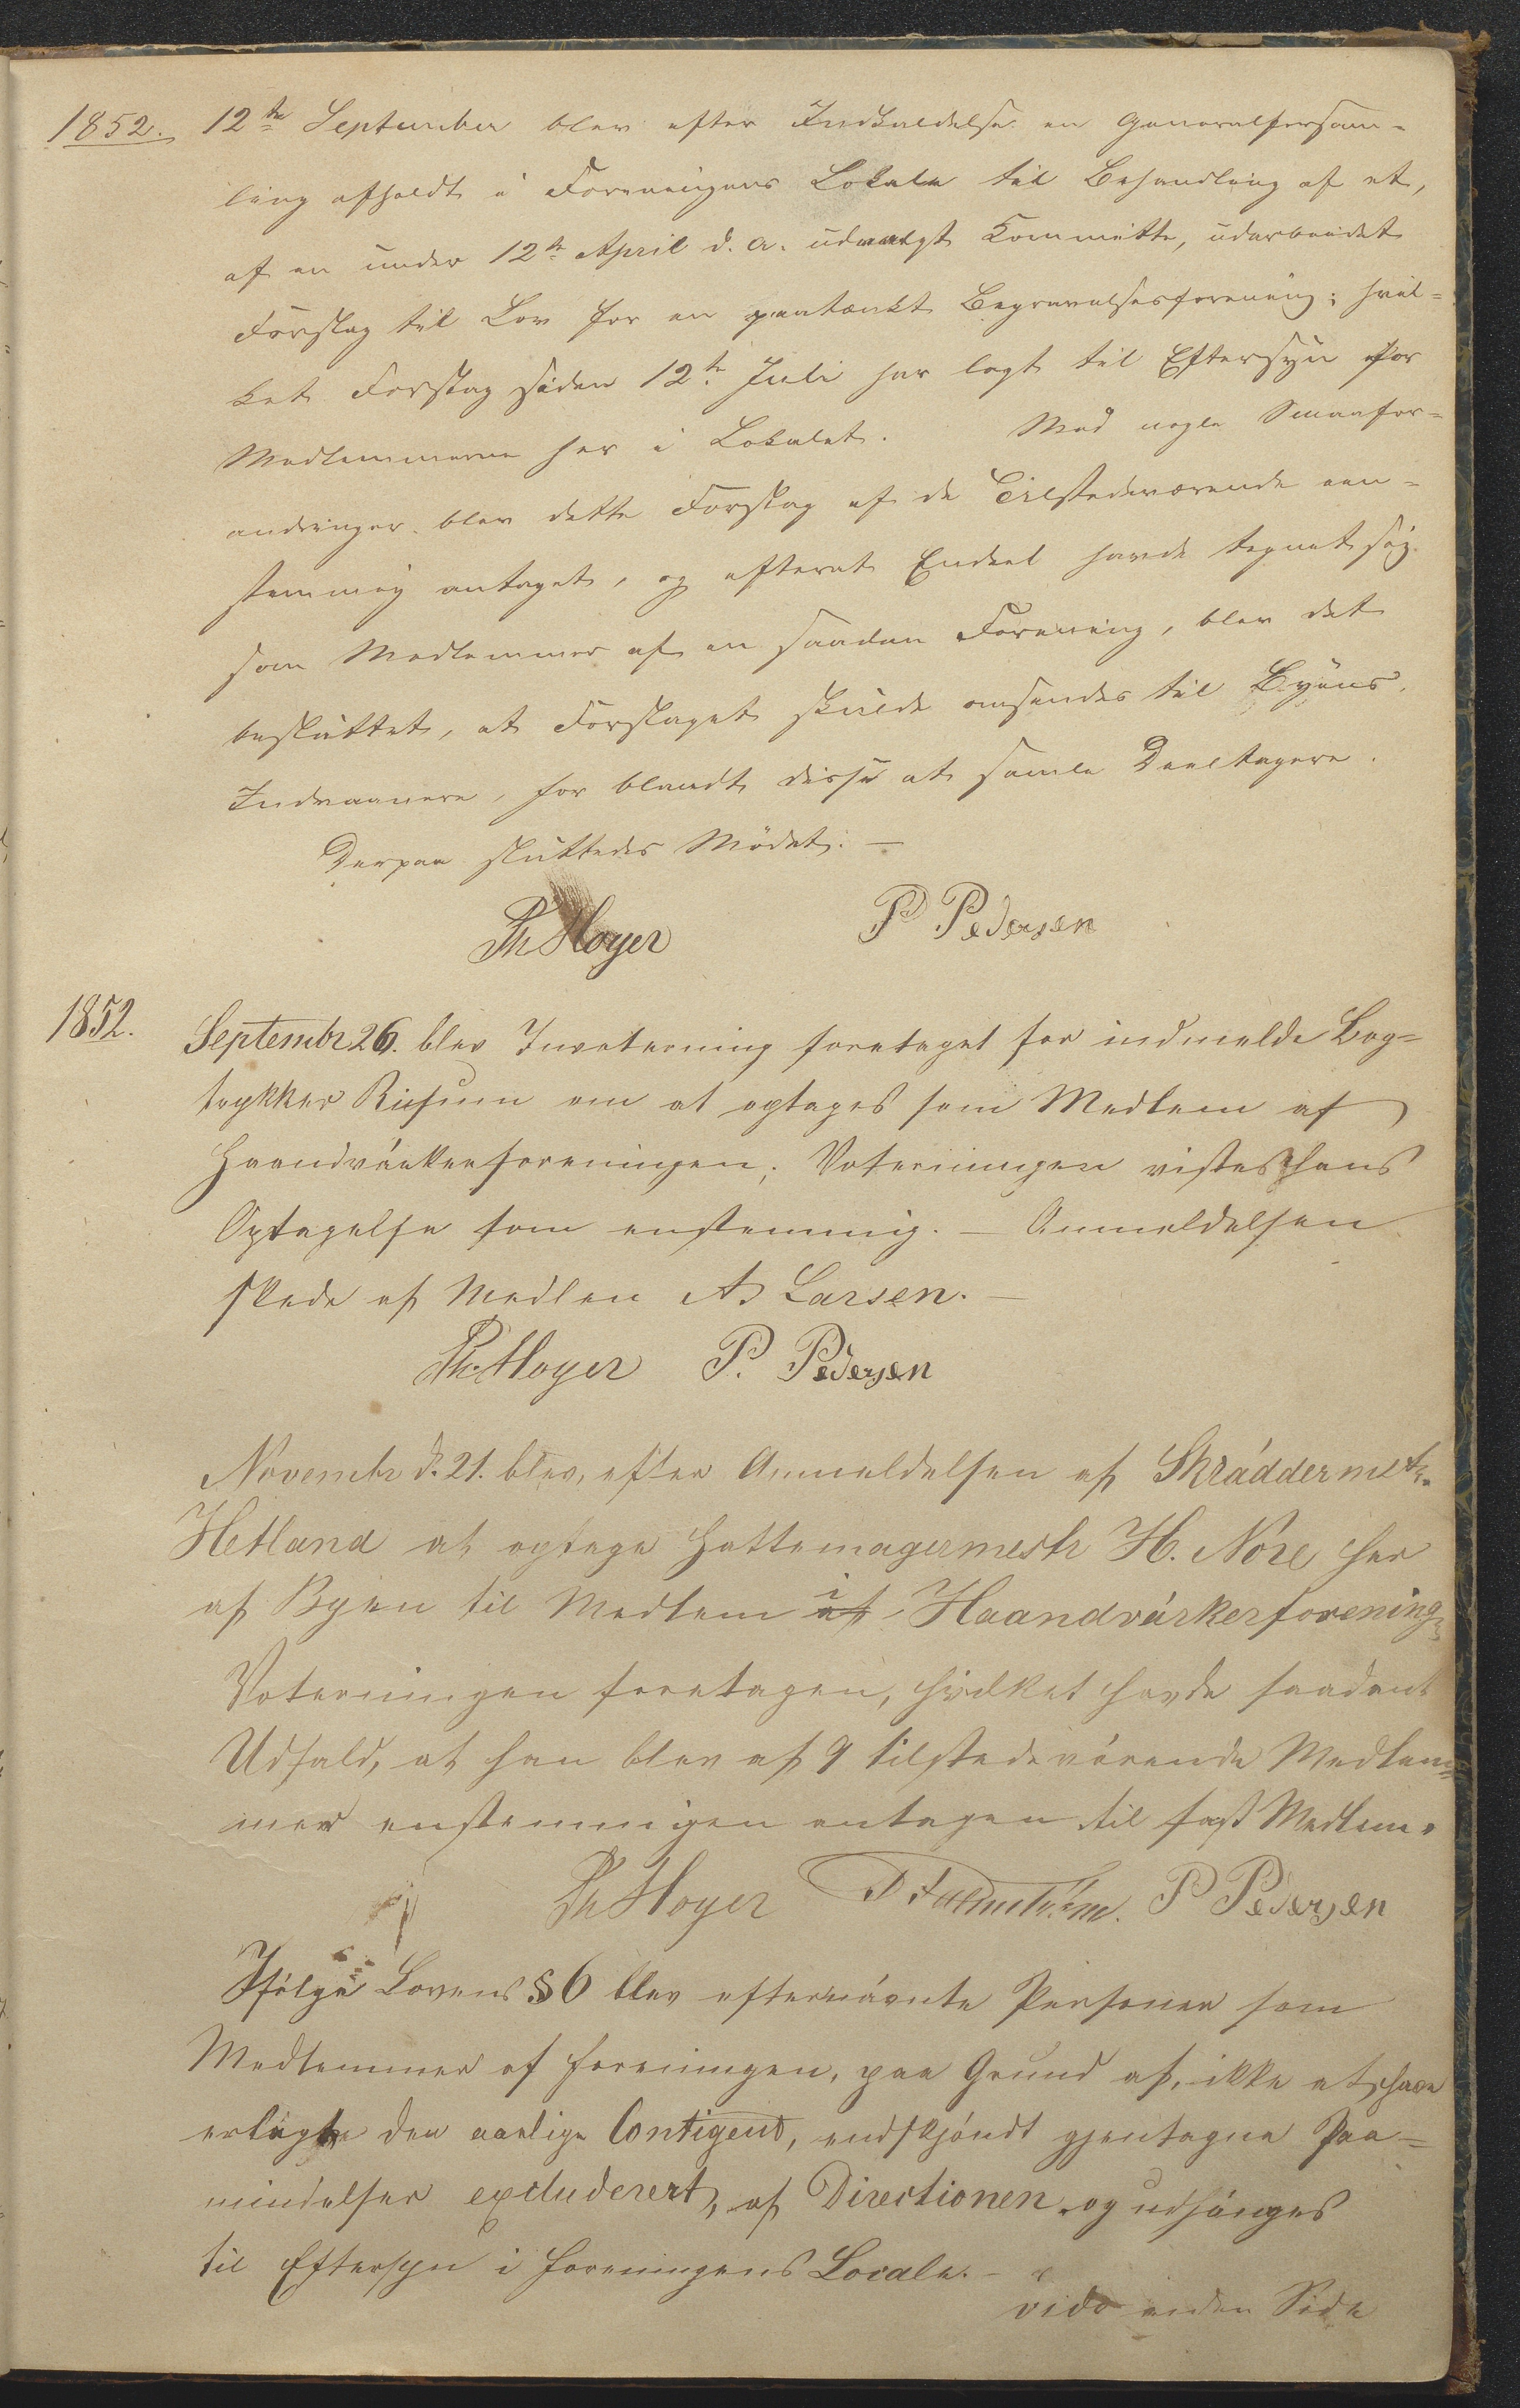 1852. 12te September blev efter Indkaldelse en Generalforsam-
ling afholdt i Foreningens Lokale til Behandling af et,
af en under 12te April d. A. udvalgt Kommitte, udarbeidet
Forslag til Lov for en paatænkt Begravelsesforening; hvil-
ket Forslag siden 12te Juli har lagt til Eftersyn for
Medlemmerne her i Lokalet. Med nogle Smaafor-
andringer blev dette Forslag af de Tilstedeværende een-
stemmig antaget, og efterat Endeel havde tegnet sig
som Medlemmer af en saadan Forening, blev det
besluttet, at Forslaget skulde omsendes til Byens
Indvaanere, for blandt disse at samle Deeltagere.
Derpaa sluttedes Mødet. —
Th Høyer P Pedersen
1852. Septembr 26. blev Invotering foretaget for indmeldte Bog-
trykker Riisum om at optages som Medlem af
Haandværkerforeningen; Voteringen vistes hans
Optagelse som enstemmig. — Anmeldelsen
skede af Medlem A. Larsen. —
Th. Høyer P. Pedersen
Novembr d. 21. blev, efter Anmeldelsen af Skráddermstr.
Hetland at optage Hattemagermestr H. Nore her
af Byen til Medlem af i Haandvárkerforening
Voteringen foretagen, hvilket havde saadant
Udfald, at han blev af 9 tilstedevárende Medlem-
mer enstemmigen antagen til fast Medlem.
Th Høyer P Pedersen
Ifølge Lovens § 6 blev efternávnte Personer som
Medlemmer af Foreningen, paa Grund af, ikke at have
erlagte den aarlige Contigent, endskjøndt gjentagne Paa-
mindelser excluderert, af Directionen og udhánges
til Eftersyn i Foreningens Locale. —
vide anden Side